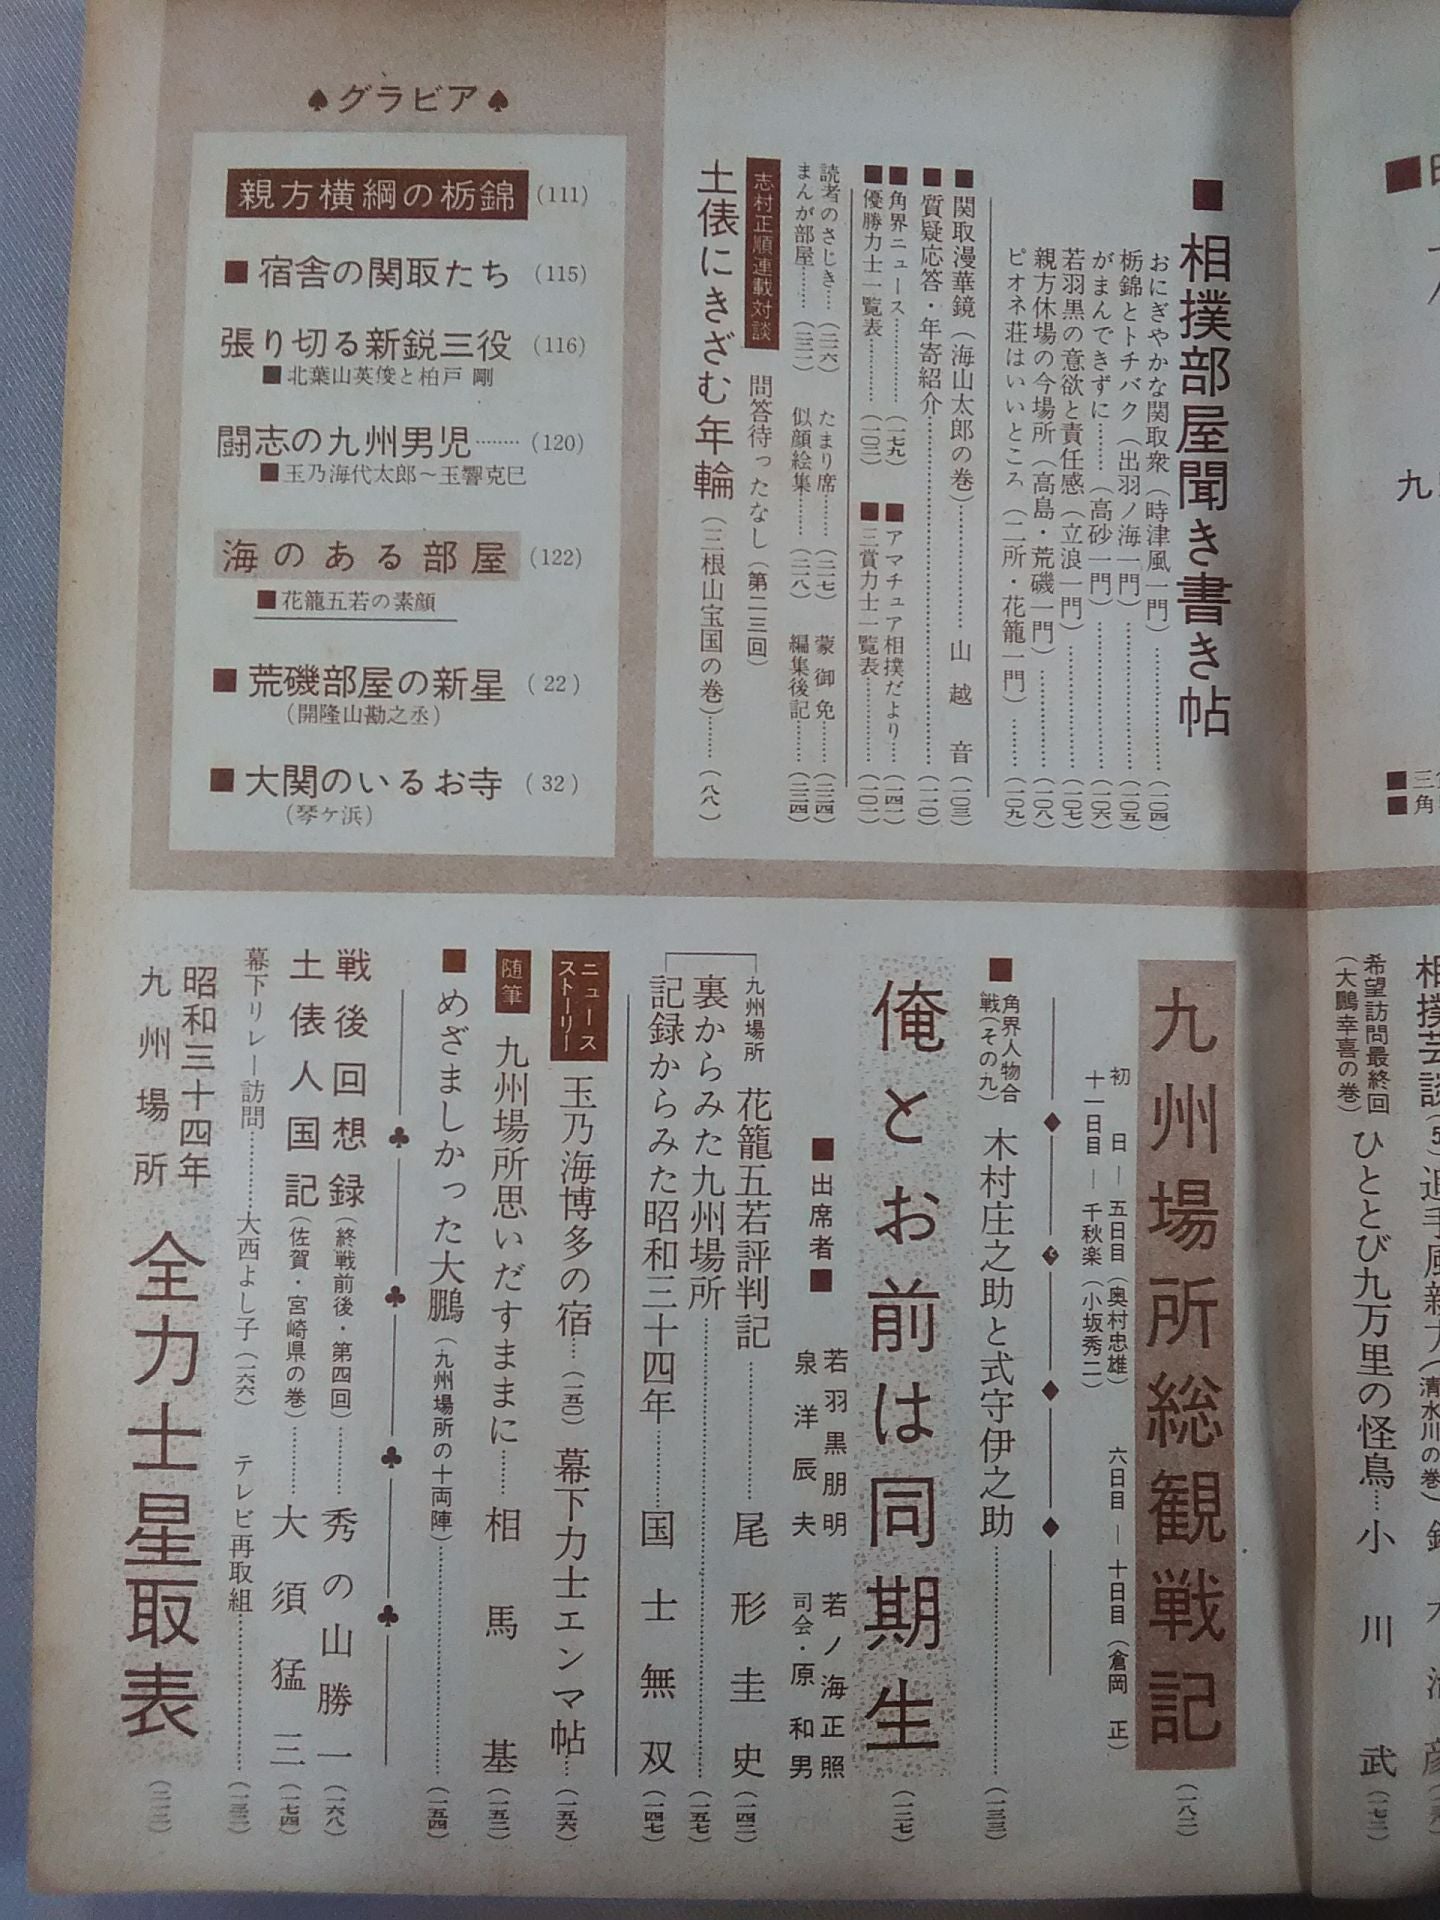 ■相撲部屋聞き書き帖
おにぎやかな関取衆（時津風一門）……（一〇四）
栃錦とトチバク（出羽ノ海一門）……（一〇五）
がまんできずに……（高砂一門）……（一〇六）
若羽黒の意欲と責任感（立浪一門）……（一〇七）
親方休場の今場所（高島・荒磯一門）……（一〇八）
ピオネ荘はいいところ（二所・花籠一門）……（一〇九）
■関取漫華鏡（海山太郎の巻）……山越音（一〇三）
■質疑応答・年寄紹介……（一一〇）
■角界ニュース……（一七九）
■アマチュア相撲だより……（一四一）
■優勝力士一覧表……（一〇二）
■三賞力士一覧表……（一〇一）
読者のさじき…（二二六）
たまり席……（二一七）
蒙御免……（二三四）
まんが部屋……（二三二）
似顔絵集……（二二八）
編集後記……（二三四）
志村正順連載対談
問答待ったなし（第二三回）
土俵にきざむ年輪（三根山宝国の巻）……（八八）
♠グラビア♠
親方横綱の栃錦 (111)
■宿舎の関取たち (115)
張り切る新鋭三役 (116)
■北葉山英俊と柏戸 剛
闘志の九州男児……… (120)
■玉乃海代太郎〜玉響克巳
海のある部屋 (122)
■花籠五若の素顔
■荒磯部屋の新星 (22)
(開隆山勘之丞)
■大関のいるお寺 (32)
(琴ケ浜)
希望訪問最終回
（大鵬幸喜の巻）
ひととび九万里の怪鳥…小川武（一七二）
九州場所総観戦記（一八二）
初日―五日目（奥村忠雄）
六日目―十日目（倉岡 正）
十一日目―千秋楽（小坂秀二）
■角界人物合戦（その九）
木村庄之助と式守伊之助……（一三三）
俺とお前は同期生（一二七）
■出席者■
若羽黒朋明
若ノ海正照
泉洋辰夫
司会・原和男
九州場所
花籠五若評判記……尾形圭史（一四二）
裏からみた九州場所……（一五七）
記録からみた昭和三十四年……国士無双（一四七）
ニュースストーリー
玉乃海博多の宿…（一五〇）
幕下力士エンマ帖…（一五六）
随筆
九州場所思いだすままに……相馬基（一五二）
■めざましかった大鵬（九州場所の十両陣）……（一五四）
戦後回想録（終戦前後・第四回）……秀の山勝一（一六八）
土俵人国記（佐賀・宮崎県の巻）……大須猛三（一七四）
幕下リレー訪問……大西よし子（一六六）
テレビ再取組……（一三二）
昭和三十四年
九州場所
全力士星取表